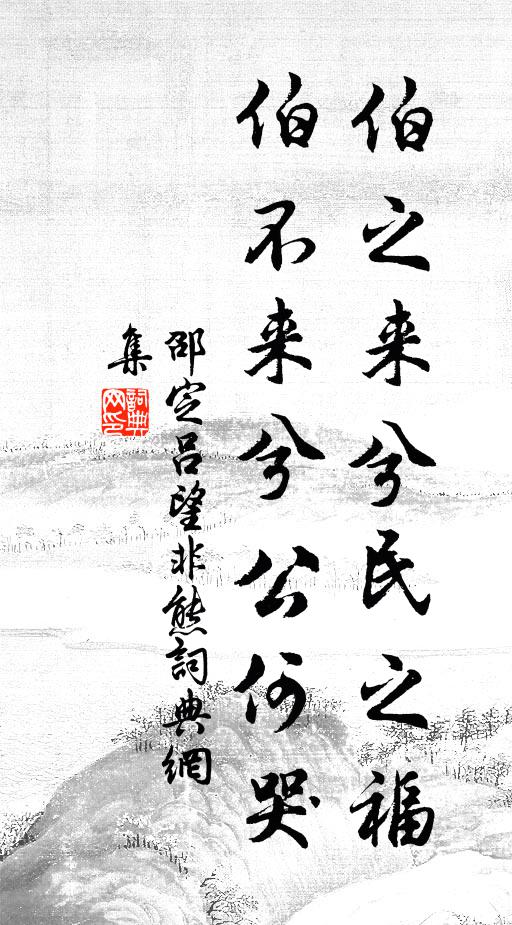 伯之来兮民之福
伯不来兮公何哭
邵定吕望非熊詞典網
集
詞典網印